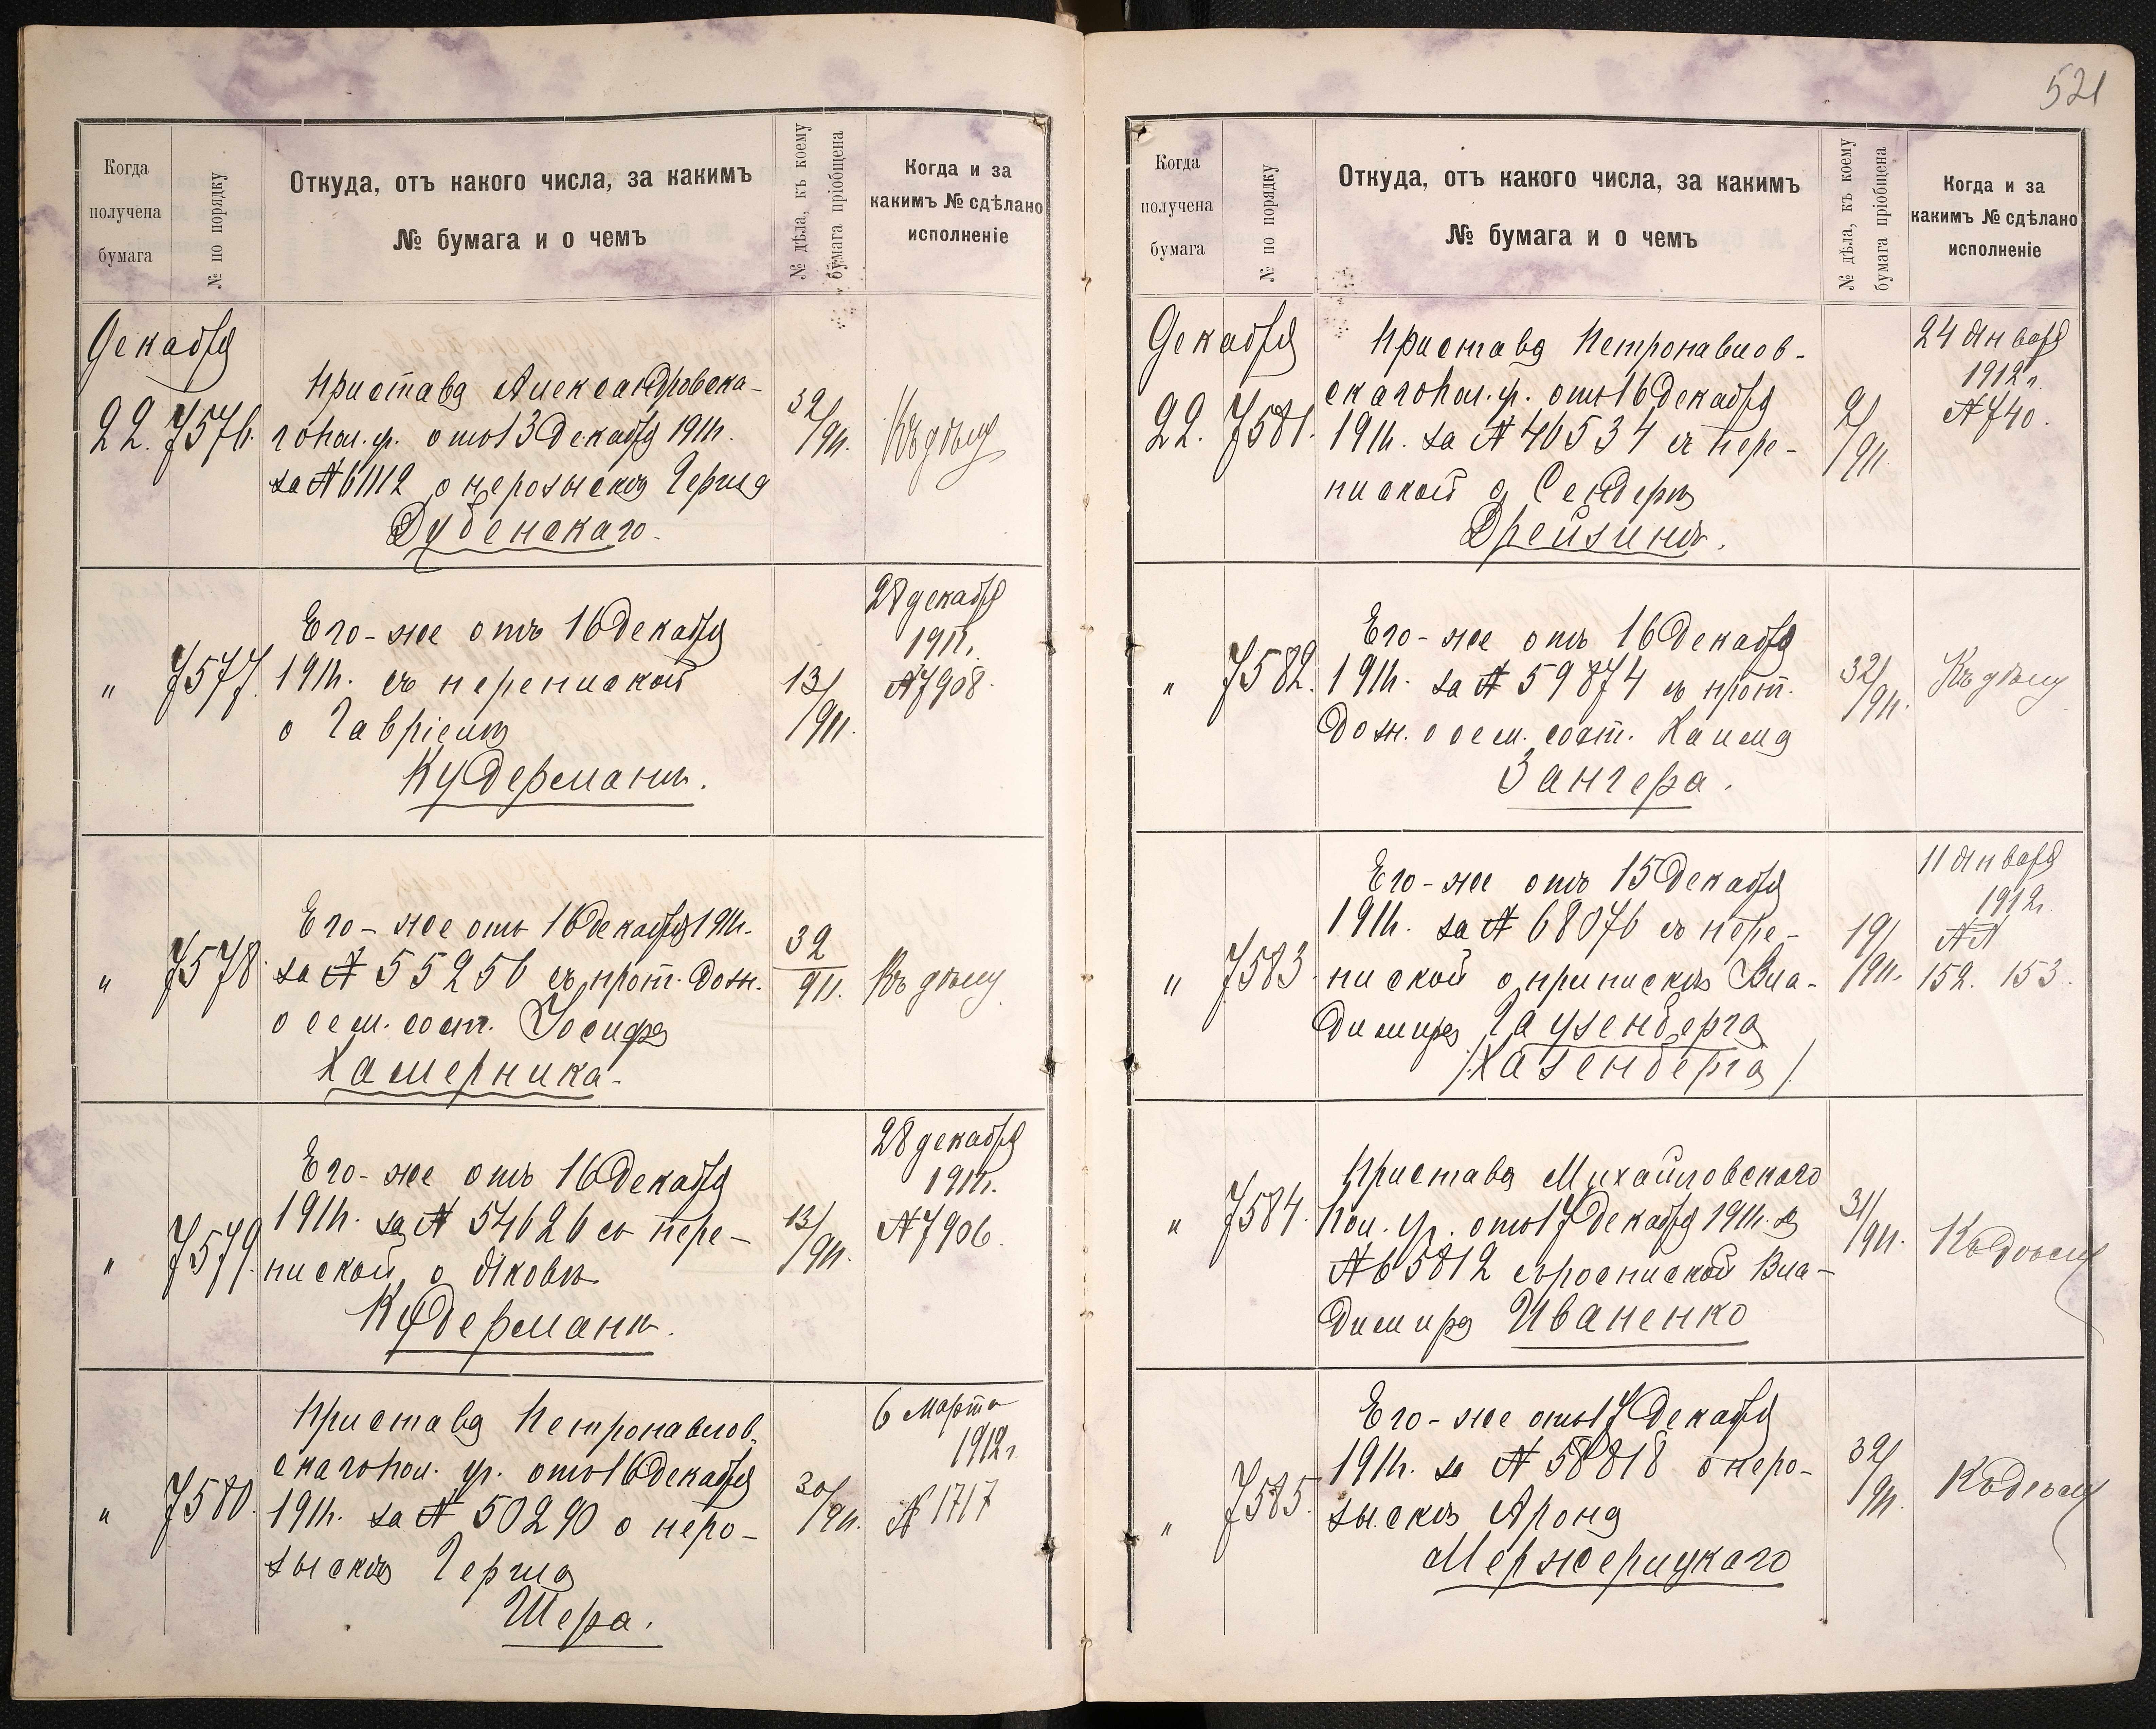 521
Когда
получена
бумага
№ по порядку
Откуда, отъ какого числа, за какимъ
№ бумага и о чемъ
№ дѣла, къ коему
бумага пріобщена
Когда и за
какимъ № сдѣлано
исполненіе
Декабря
22. 7576.
Пристава Александровска-
го пол. уч. отъ 13 Декабря 1911г.
за № 61112 о нерозыскѣ Герша
Дубенскаго.
32/911.
Къ дѣлу
" 7577.
Его-же отъ 16 Декабря
1911г. съ перепиской
о Гавріелѣ
Кудерманъ.
13/911.
28 декабря
1911г.
№ 7908.
" 7578.
Его-же отъ 16 Декабря 1911г.
за № 55256 съ прот. дозн.
о сем. сост. Іосифа
Хамерника.
32/911.
Къ дѣлу
" 7579.
Его-же отъ 16 Декабря
1911г. за № 54626 съ пере-
пиской о Яковѣ
Кудерманъ.
13/911.
28 декабря
1911г.
№ 7906.
" 7580.
Пристава Петропавлов-
скаго пол. уч. отъ 16 Декабря
1911г. за № 50290 о неро-
зыскѣ Герша
Шера.
30/911.
6 Марта
1912г.
№ 1717
Когда
получена
бумага
№ по порядку
Откуда, отъ какого числа, за какимъ
№ бумага и о чемъ
№ дѣла, къ коему
бумага пріобщена
Когда и за
какимъ № сдѣлано
исполненіе
Декабря
22. 7581.
Пристава Петропавлов-
скаго пол. уч. отъ 16 Декабря
1911г. за № 46534 съ пере-
пиской о Сендерѣ
Дрейзинъ.
2/911.
24 Января
1912г.
№ 740.
" 7582.
Его-же отъ 16 Декабря
1911г. за № 59874 съ прот.
Дозн. о сем. сост. Хаима
Зангера.
32/911.
Къ дѣлу
" 7583.
Его-же отъ 15 Декабря
1911г. за № 68076 съ пере-
пиской о припискѣ Вла-
димира Гаузенберга
/Хазенберга/
19/911.
11 Января
1912г.
№№
152. 153.
" 7584.
Пристава Михайловскаго
пол. уч. отъ 17 Декабря 1911г. за
№ 65812 съ роспиской Вла-
димира Иваненко
31/911.
Къ дѣлу
" 7585.
Его-же отъ 17 Декабря
1911г. за № 58818 о неро-
зыскѣ Арона
Мержерицкаго
32/911.
Къ дѣлу